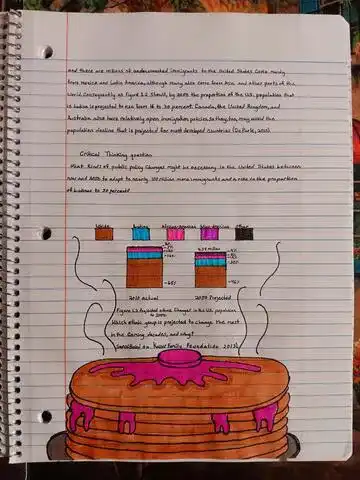 and there are millions of undocumented immigrants to the United States come mainly
from Mexico and Latin America, although many also come from Asia and other parts of the
world. Consequently as figure 1.2 shows, by 2050 the proportion of the U.S. population that
is Latino is projected to rise from 16 to 30 percent. Canada, the United Kingdom, and
Australia also have relatively open immigration policies so they too, may avoid the
population decline that is projected for most developed countries (DeParle, 2010).
Critical Thinking question
What kinds of public policy changes might be necessary in the United States between
now and 2050 to adapt to nearly 117 million more immigrants and a rise in the proportion
of Latinos to 30 percent?
White
Latino
African-American
Asian American
other
2010 actual
2050 Projected
Figure 1.2 Projected ethnic changes in the U.S. population
to 2050.
Which ethnic group is projected to change the most
in the coming decades, and why?
on Kaiser Family Foundation 2013)